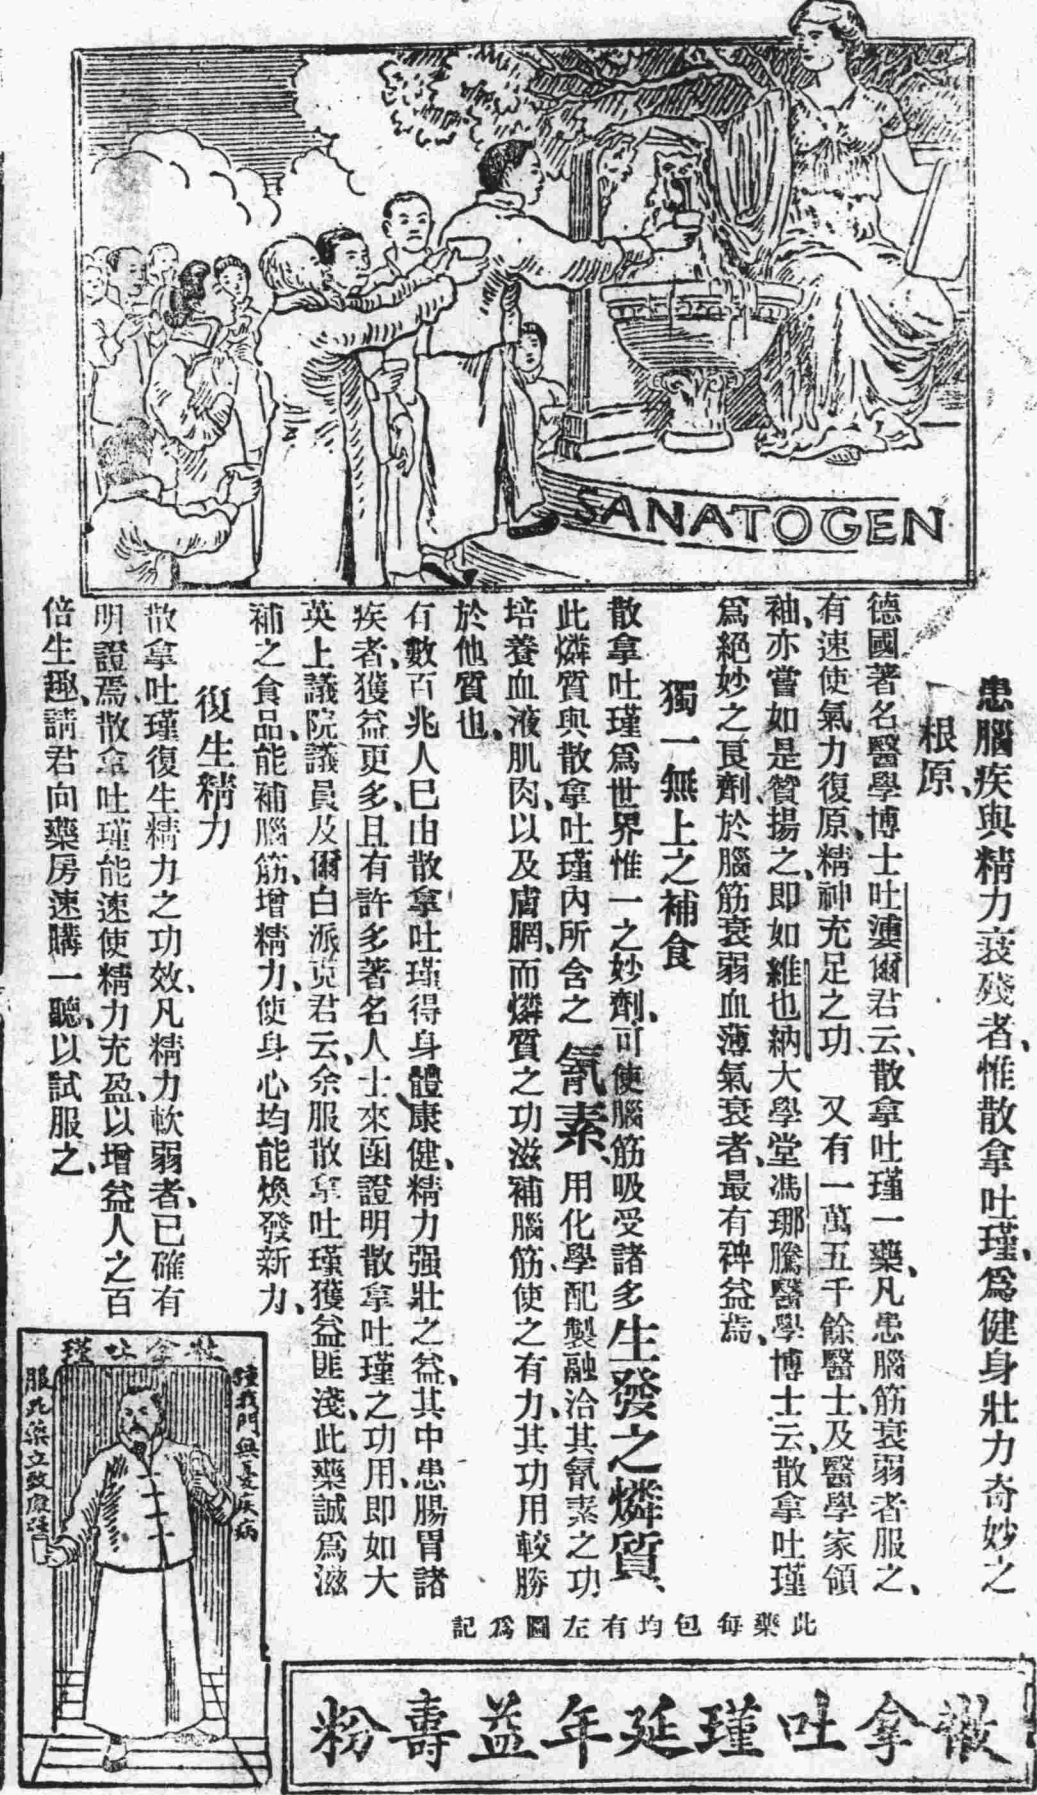 SANATOGEN
患腦疾與精力衰殘者、惟散拿吐瑾、爲健身壯力奇妙之
根原、
德國著名醫學博士吐漊爾君云、散拿吐瑾一藥、凡患腦筋衰弱者服之、
有速使氣力復原、精神充足之功 又有一萬五千餘醫士、及醫學家領
袖、亦嘗如是贊揚之、即如維也納大學堂馮哪騰醫學博士云、散拿吐瑾
爲絕妙之良劑、於腦筋衰弱血薄氣衰者、最有裨益焉、
獨一無上之補食
散拿吐瑾爲世界惟一之妙劑、可使腦筋吸受諸多生發之燐質、
此燐質與散拿吐瑾內所含之 氰素、用化學配製融洽其氰素之功
培養血液肌肉、以及膚膶、而燐質之功滋補腦筋、使之有力、其功用較勝
於他質也、
有數百兆人巳由散拿吐瑾得身體康健、精力强壯之益、其中患腸胃諸
疾者、獲益更多、且有許多著名人士來函證明散拿吐瑾之功用、即如大
英上議院議員及爾白派克君云、余服散拿吐瑾獲益匪淺、此藥誠爲滋
補之食品、能補腦筋、增精力、使身心均能煥發新力、
復生精力
散拿吐瑾復生精力之功效、凡精力軟弱者、已確有
明證焉、散拿吐瑾能速使精力充盈、以增益人之百
倍生趣、請君向藥房速購一聽、以試服之、
此藥每包均有左圖爲記
散拿吐瑾延年益壽粉
散拿吐瑾
我門無憂疾病
服此藥立致康